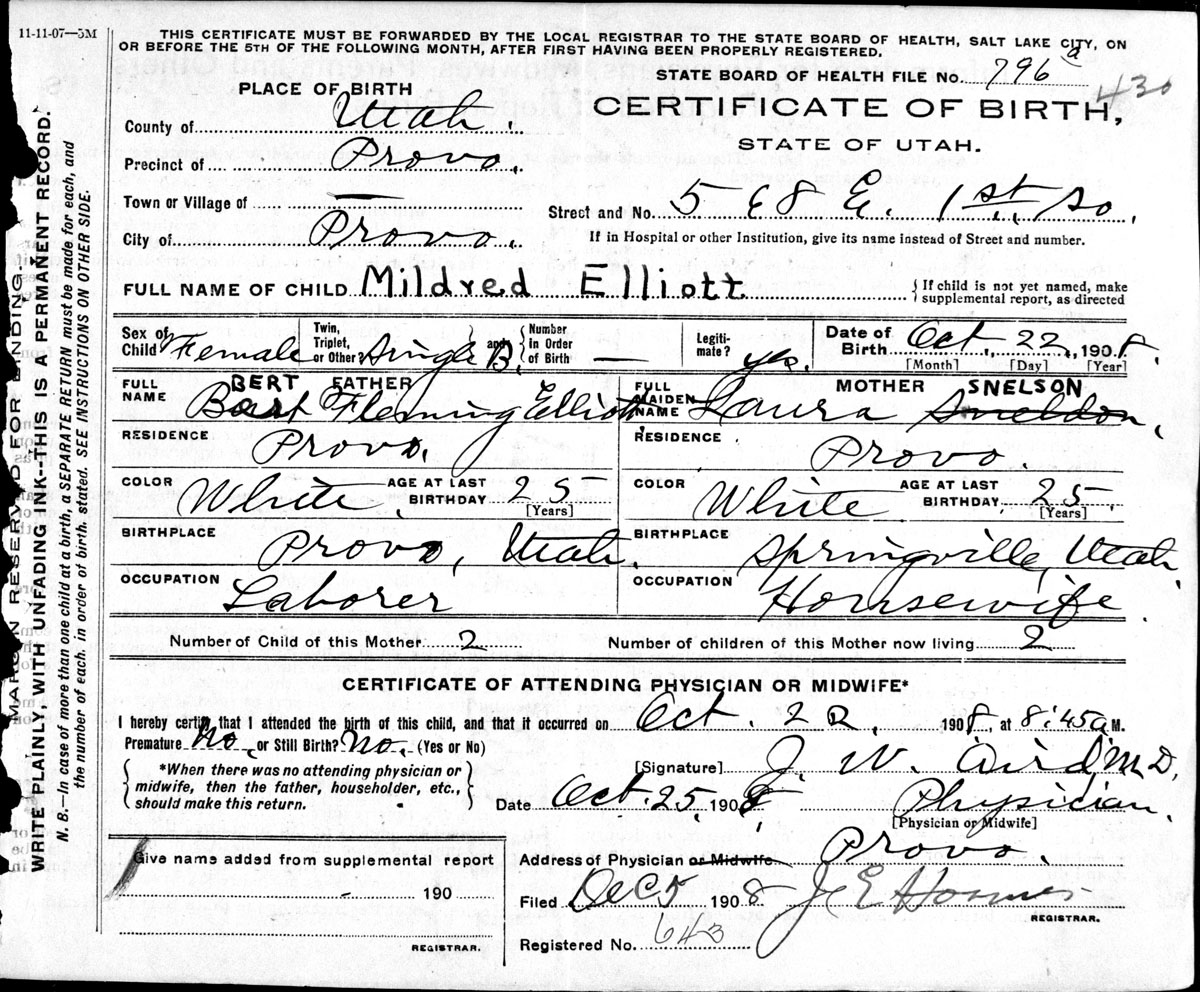 11-11-07—5M
THIS CERTIFICATE MUST BE FORWARDED BY THE LOCAL REGISTRAR TO THE STATE BOARD OF HEALTH, SALT LAKE CITY, ON
OR BEFORE THE 5TH OF THE FOLLOWING MONTH, AFTER FIRST HAVING BEEN PROPERLY REGISTERED.
STATE BOARD OF HEALTH FILE No. 796 a
430
PLACE OF BIRTH
CERTIFICATE OF BIRTH,
STATE OF UTAH.
County of Utah.
Precinct of Provo.
Town or Village of —
City of Provo.
Street and No. 568 E. 1st So.
If in Hospital or other Institution, give its name instead of Street and number.
FULL NAME OF CHILD Mildred Elliott
{ If child is not yet named, make
supplemental report, as directed
Sex of Child Female
Twin, Triplet, or Other? Single B.
and { Number in Order of Birth —
Legitimate? yes.
Date of Birth Oct. 22, 1908.
[Month] [Day] [Year]
FULL NAME BERT FATHER
Bert Fleming Elliott
FULL MAIDEN NAME MOTHER SNELSON
Laura Sneldon,
RESIDENCE Provo.
RESIDENCE Provo.
COLOR White. AGE AT LAST BIRTHDAY 25 [Years]
COLOR White. AGE AT LAST BIRTHDAY 25 [Years]
BIRTHPLACE Provo, Utah.
BIRTHPLACE Springville, Utah.
OCCUPATION Laborer
OCCUPATION Housewife.
Number of Child of this Mother 2
Number of children of this Mother now living 2
CERTIFICATE OF ATTENDING PHYSICIAN OR MIDWIFE*
I hereby certify that I attended the birth of this child, and that it occurred on Oct. 22, 1908, at 8:45 a M.
Premature No, or Still Birth? No. (Yes or No)
{ *When there was no attending physician or
midwife, then the father, householder, etc.,
should make this return. }
[Signature] J. W. Aird, M.D.
Date Oct. 25, 1908
Physician.
[Physician or Midwife]
Give name added from supplemental report
190
REGISTRAR.
Address of Physician or Midwife Provo.
Filed Dec 5 1908
REGISTRAR.
Registered No. 643
MARGIN RESERVED FOR BINDING.
WRITE PLAINLY WITH UNFADING INK—THIS IS A PERMANENT RECORD.
N. B.—In case of more than one child at a birth, a SEPARATE RETURN must be made for each, and
the number of each. in order of birth. stated. SEE INSTRUCTIONS ON OTHER SIDE.